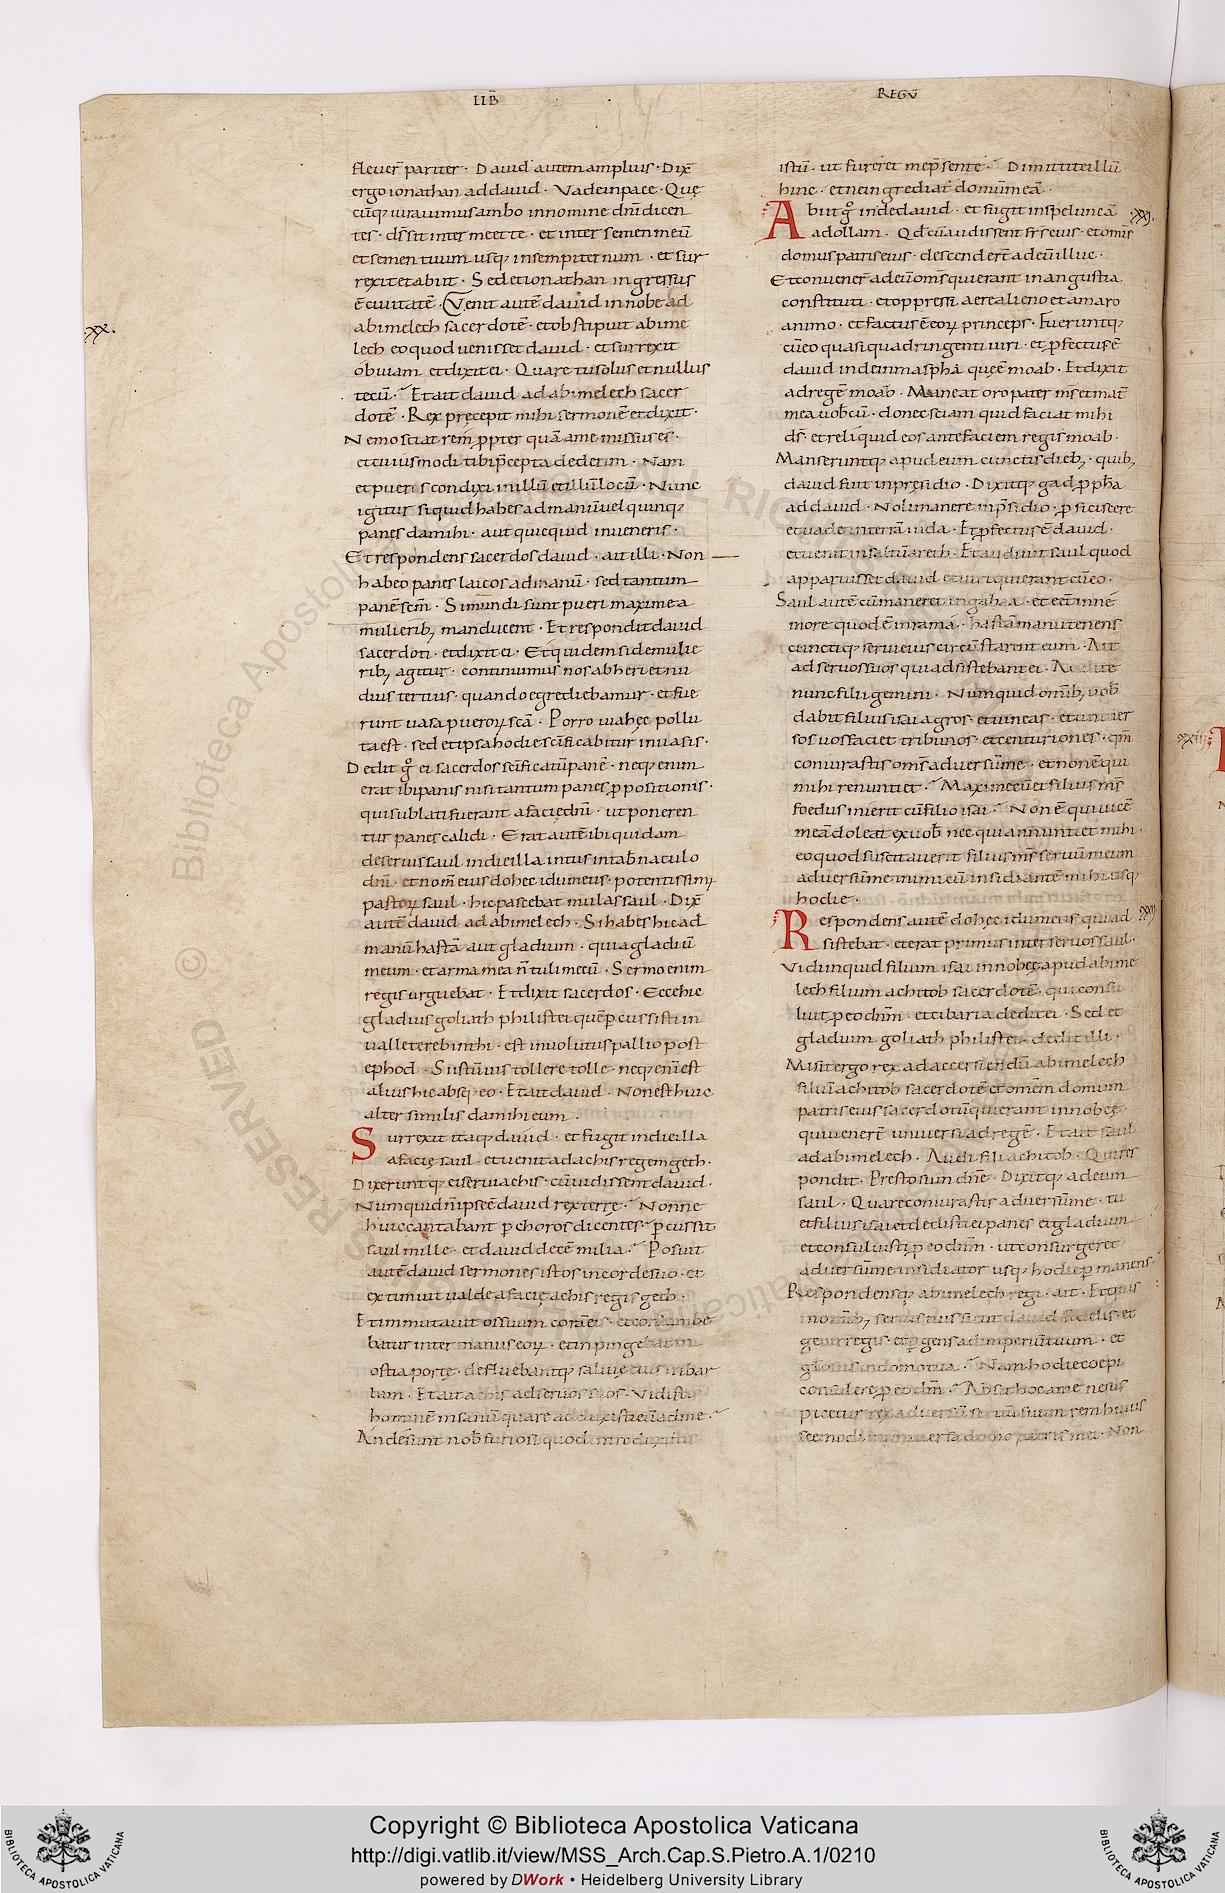 IIB
REGŪ
fleuer̄ pariter · Dauid autem amplius · Dix̄
ergo ionathan ad dauid · Vade in pace · Quę
cūq; iurauimus ambo in nomine dn̄i dicen
tes · dn̄s sit inter me et te · et inter semen meū
et semen tuum usq; in sempiternum · et sur
rexit et abiit · Sed et ionathan ingressus
ē ciuitatē · Venit autē dauid in nobe ad
·xx·
abimelech sacerdotē · et obstipuit abime
lech eo quod uenisset dauid · et surrexit
obuiam et dixit ei · Quare tu solus et nullus
tecū · Et ait dauid ad abimelech sacer
dotē · Rex pręcepit mihi sermonē et dixit ·
Nemo sciat rem ꝓpter quā a me missus es ·
et cuiusmodi tibi p̄cepta dederim · Nam
et pueris condixi in illū et illū locū · Nunc
igitur si quid habes ad manū uel quinq;
panes da mihi · aut quicquid inueneris ·
Et respondens sacerdos dauid · ait illi · Non
habeo panes laicos ad manū · sed tantum
panē scm̄ · Si mundi sunt pueri maxime a
mulierib; manducent · Et respondit dauid
sacerdoti · et dixit ei · Et quidem si de mulie
rib; agitur · continuimus nos ab heri et nu
dius tertius · quando egrediebamur · et fue
runt uasa pueroꝝ scā · Porro uia hęc pollu
ta est · sed et ipsa hodie scīficabitur in uasis ·
Dedit gͦ ei sacerdos scīficatū panē · neq; enim
erat ibi panis nisi tantum panes ꝓpositionis ·
qui sublati fuerant a facie dn̄i · ut poneren
tur panes calidi · Erat autē ibi quidam
de seruis saul in die illa intus in tab̄naculo
dn̄i · et nom̄ eius dohec idumeus · potentissim;
pastoꝝ saul · hic pascebat mulas saul · Dix̄
autē dauid ad abimelech · Si habes hic ad
manū hastā aut gladium · quia gladiū
meum · et arma mea n̄ tuli mecū · Sermo enim
regis urguebat · Et dixit sacerdos · Ecce hic
gladius goliath philistei quē ꝑcussisti in
ualle terebinthi · est inuolutus pallio post
ephod · Si istū uis tollere tolle · neq; enī est
alius hic absq; eo · Et ait dauid · Non est huic
alter similis da mihi eum ·
Surrexit itaq; dauid · et fugit in die illa
a facię saul · et uenit ad achis regem geth ·
Dixeruntq; ei serui achis · cū uidissent dauid ·
Numquid n̄ ipse ē dauid rex terrę · Nonne
huic cantabant ꝑ choros dicentes · ꝑcussit
saul mille · et dauid decē milia · Posuit
autē dauid sermones istos in corde suo · et
extimuit ualde a facię achis regis geth ·
Et immutauit os suum corā eis · et conlambe
batur inter manus eoꝝ · et inpingebat in
ostia portę · defluebantq; saliuę eius in bar
bam · Et ait achis ad seruos suos · Vidistis
hominē insanū quare adduxistis eū ad me ·
An desunt nob̄ furiosi quod introduxistis
istū · ut fureret me p̄sente · Dimittite illū
hinc · et ne ingrediat̄ domū meā ·
Abiit gͦ inde dauid · et fugit in speluncā
·xxi·
adollam · Qd̄ cū audissent fr̄s eius · et omīs
domus patris eius · descender̄t ad eū illuc ·
Et conuener̄ ad eū om̄s qui erant in angustia
constituti · et oppressi aere alieno et amaro
animo · et factus ē eoꝝ princeps · Fueruntq;
cū eo quasi quadringenti uiri · et ꝓfectus ē
dauid inde in masphā quęē moab · Et dixit
ad regē moab · Maneat oro pater m̄s et mat̄
mea uob̄cū · donec sciam quid faciat mihi
ds̄ · et reliquid eos ante faciem regis moab ·
Manseruntq; apud eum cunctis dieb; · quib;
dauid fuit in pręsidio · Dixitq; gad ꝓpha
ad dauid · Noli manere in p̄sidio · ꝓficiscere
et uade in terrā iuda · Et ꝓfectus ē dauid ·
et uenit in saltū areth · Et audiuit saul quod
apparuisset dauid et uiri qui erant cū eo ·
Saul autē cū maneret in gabaa · et eēt in ne
more quod ē in rama · hastā manu tenens
cunctiq; serui eius circūstarent eum · Ait
ad seruos suos qui adsistebant ei · Audite
nunc filii gemini · Numquid omīb; uob̄
dabit filius isai agros · et uineas · et uniuer
sos uos faciet tribunos · et centuriones · qm̄
coniurastis om̄s aduersū me · et non ē qui
mihi renuntiet · Maxime cū et filius m̄s
foedus inierit cū filio isai · Non ē qui uicē
meā doleat ex uob̄ nec qui annuntiet mihi ·
eo quod suscitauerit filius m̄s seruū meum
aduersū me inimicū insidiantē mihi usq;
hodie ·
Respondens autē dohęc idumeus qui ad
·xxii·
sistebat · et erat primus inter seruos saul ·
Vidi inquid filium isai in nobę apud abime
lech filium achitob sacerdotē · qui consu
luit ꝓ eo dn̄m · et cibaria dedit ei · Sed et
gladium goliath philistei dedit illi ·
Misit ergo rex ad accersiendū abimelech
filiū achitob sacerdotē et omēm domum
patris eius sacerdotū qui erant in nobę ·
qui uener̄t uniuersi ad regē · Et ait saul
ad abimelech · Audi fili achitob · Qui res
pondit · Presto sum dn̄e · Dixitq; ad eum
saul · Quare coniurastis aduersū me · tu
et filius isai et dedisti ei panes et gladium
et consuluisti ꝓ eo dn̄m · ut consurgeret
aduersū me insidiator usq; hodie ꝑmanens ·
Respondensq; abimelech regi · ait · Et quis
in omīb; seruis tuis sicut dauid fidelis · et
gener regis · et ꝑgens ad imperiū tuum · et
gloriosus in domo tua · Nam hodie coepi
consulere ꝓ eo dn̄m · Absit hoc a me ne sus
picetur rex aduersū seruū suum rem huius
scemodi in uniuersa domo patris mei · Non
xxiii
Copyright © Biblioteca Apostolica Vaticana
http://digi.vatlib.it/view/MSS_Arch.Cap.S.Pietro.A.1/0210
powered by DWork • Heidelberg University Library